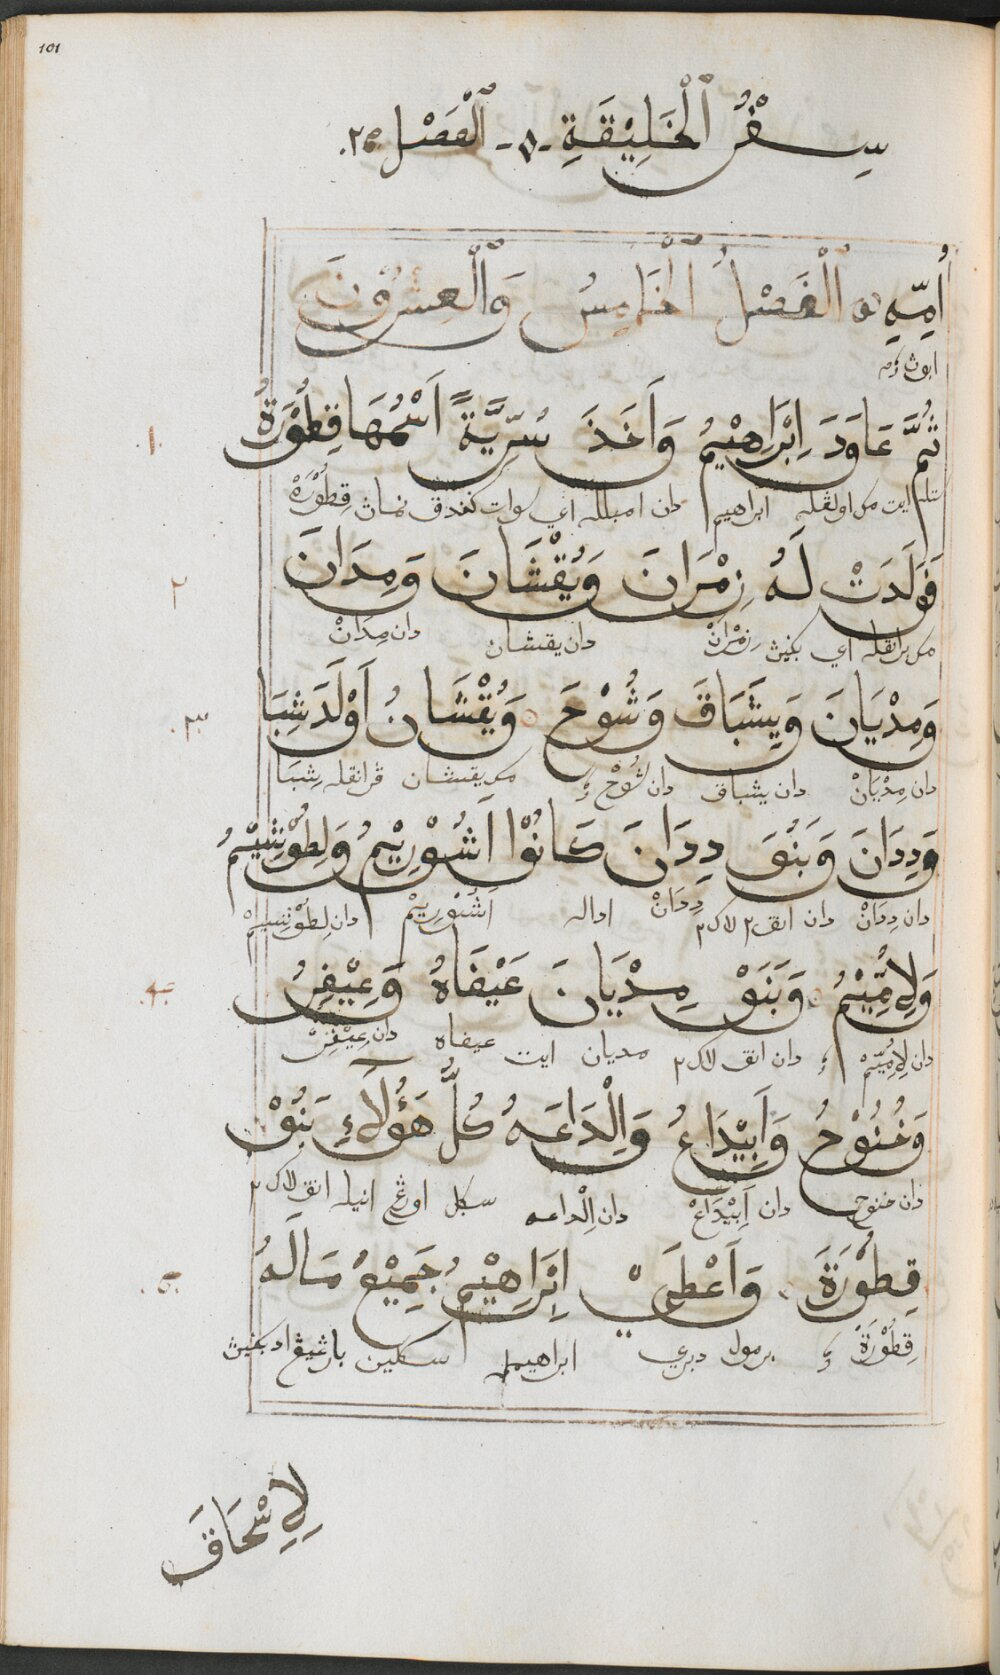 101
سِفْرُ ٱلْخَلِيْقَةِ - ٥ - ٱلْفَصْل ٢٥.
أُمِّهِ ۞ ٱلْفَصْلُ ٱلْخَامِسُ وَٱلْعِشْرُوْنَ
ابوث
١ ثُمَّ عَاوَدَ اِبْرَاهِيْمُ وَاَخَذَ سُرِّيَّةً اَسْمُهَا قِطُوْرَةُ
ستله ايت مك اولڠله ابراهيم دان امبلله اي سوات كندق نمان قِطُوْرَهْ
٢ فَوَلَدَتْ لَهُ زِمْرَانَ وَيُقْشَانَ وَمِدَانَ
مك برانقله اي بكين زِمْرَانْ دان يقشان دان مِدَانْ
٣ وَمِدْيَانَ وَيِشْبَاقَ وَشُوْحَ وَيُقْشَانُ اَوْلَدَ شِبَا
دان مِدْيَانْ دان يشباق دان شُوْحْ مك يقشان ڤرانقله شِبَا
وَدِدَانَ وَبَنُوْ دِدَانَ كَانُوْا اَشُوْرِيْمُ وَلِطُوْشِيْمُ
دان دِدَانْ دان انق٢ لاک٢ دِدَانْ اداله اَشُوْرِيْمْ دان لِطُوْشِيمْ
٤ وَلِاُمِّيْمُ وَبَنَوْ مِدْيَانَ عَيْفَاهُ وَعِيْفِرُ
دان لِاُمِّيْمْ دان انق لاک٢ مديان ايت عيفاه دان عِيْفِرْ
وَخُنُوْحُ وَاَبِيْدَاعُ وَاِلْدَاعَهُ كُلُّ هَؤُلَآءِ بَنُوْ
دان خنوح دان اَبِيْدَاعْ دان اِلْداعه سكل اورڠ انيله انق لاک٢
٥ قِطُوْرَةَ وَاَعْطَىْ اِبْرَاهِيْمُ جَمِيْعُ مَالَهُ
قِطُوْرَهْ برمول دبري ابراهيمله سكلين بارڠيڠ اد بكين
لِاِسْحَاقَ